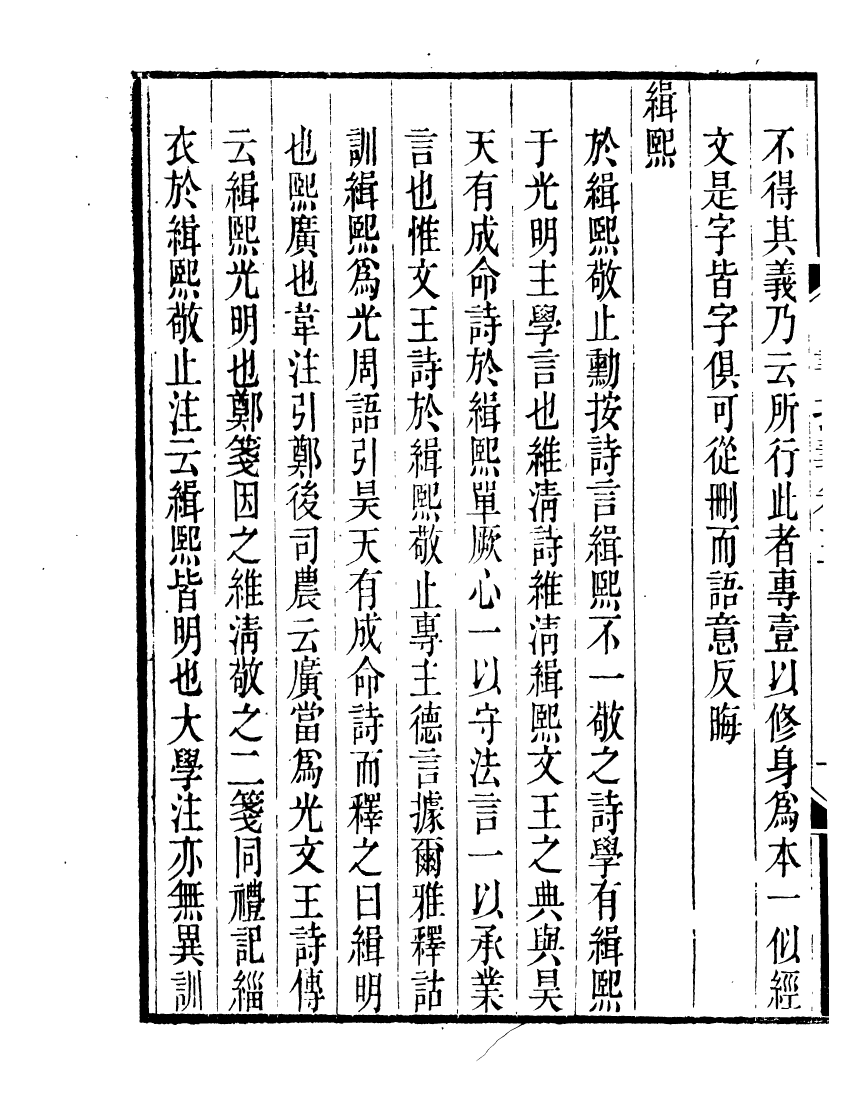 不得其義乃云所行此者專壹以修身爲本一似經
文是字皆字俱可從刪而語意反晦
緝熙
於緝熙敬止勳按詩言緝熙不一敬之詩學有緝熙
于光明主學言也維清詩維清緝熙文王之典與昊
天有成命詩於緝熙單厥心一以守法言一以承業
言也惟文王詩於緝熙敬止專主德言據爾雅釋詁
訓緝熙爲光周語引昊天有成命詩而釋之曰緝明
也熙廣也韋注引鄭後司農云廣當爲光文王詩傳
云緝熙光明也鄭箋因之維清敬之二箋同禮記緇
衣於緝熙敬止注云緝熙皆明也大學注亦無異訓